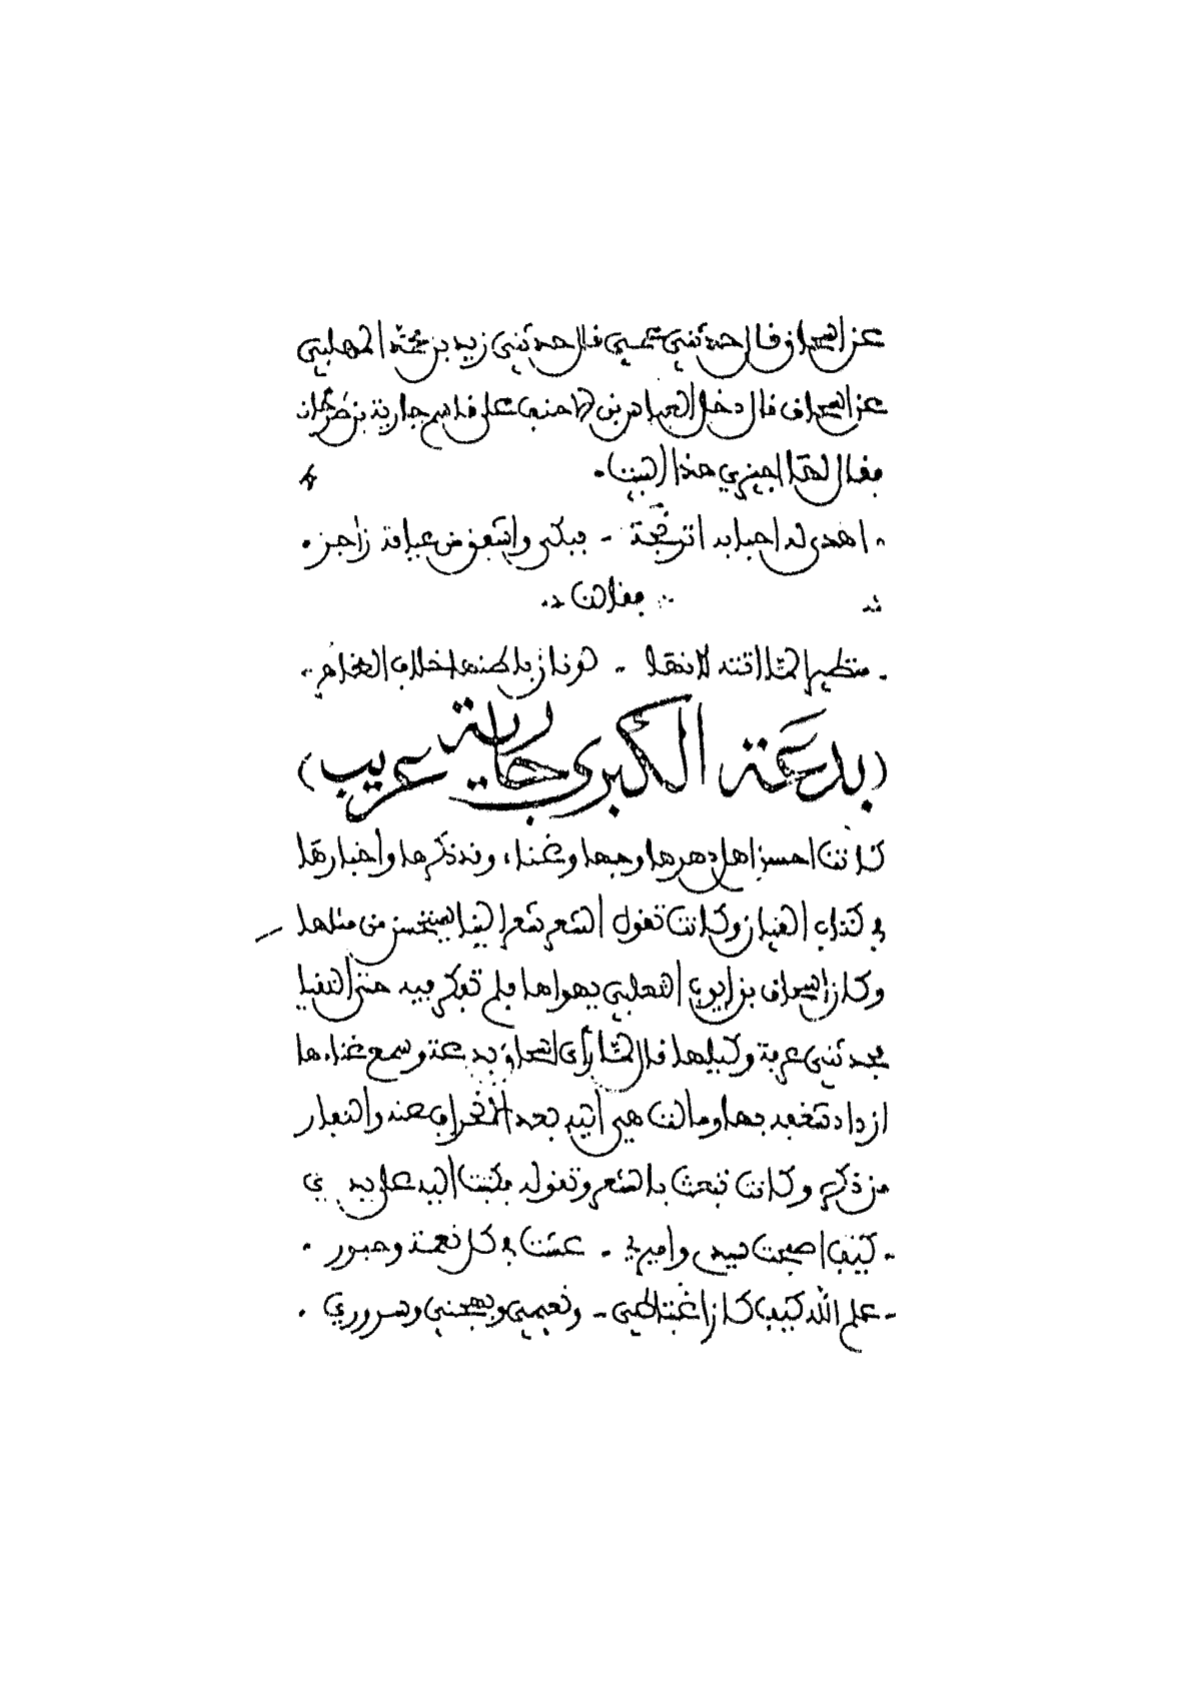 عن اسحاق قال حدثني عمي قال حدثني زيد بن محمد المهلبي
عن اسحاق قال دخل العباس بن الاحنف على قاسم جارية بن طرخان
فقال لها اجيزي هذا البيت
اهدى له احبابه اترجة - فبكى واشفق من عيافة زاجر
فقالت
متطيرا لما اتته لانها - لونان باطنها خلاف الظاهر
(بدعة الكبرى جارية عريب)
كانت احسن اهل دهرها وجها وغناء ونذكرها واخبارها
في كتاب القيان وكانت تقول الشعر شعرا لينا يستحسن من مثلها
وكان اسحاق بن ايوب التغلبي يهواها فلم تفكر فيه حتى التقيا
فحدثني عرفة وكيلها قال لما رأى اسحاق بدعة وسمع غناءها
ازداد شغفه بها ومالت هي اليه بعد انحراف عنه والنفار
من ذكره وكانت تبعث بالشعر وتقوله فكتبت اليه على يدي
كيف اصبحت سيدي واميري - عشت في كل نعمة وحبور
علم الله كيف كان اغتباطي - ونعيمي وبهجتي وسروري